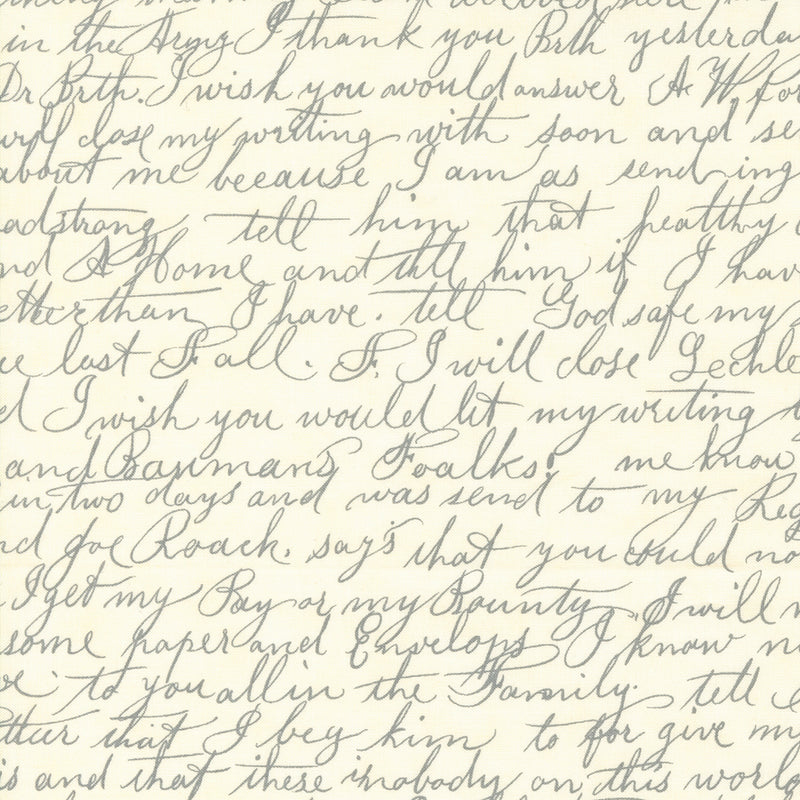 in the Army I thank you Brth yesterda
Dr Brth. I wish you would answer A W. for
will close my writing with soon and se
about me because I am as send-ing
adstrong tell him that healthy
nd A Home and till him if I hav
etter than I have. tell God safe my
ve last Fall. F. I will close Lechle
d I wish you would let my writing
and Baumans Foalks. me know
in two days and was send to my Reg
nd Joe Roack. say's that you could no
I get my Pay or my Bounty, I will
some paper and Envelops I know n
to you all in the Family. tell
that I beg him to for give my
is and that there is nobody on this world